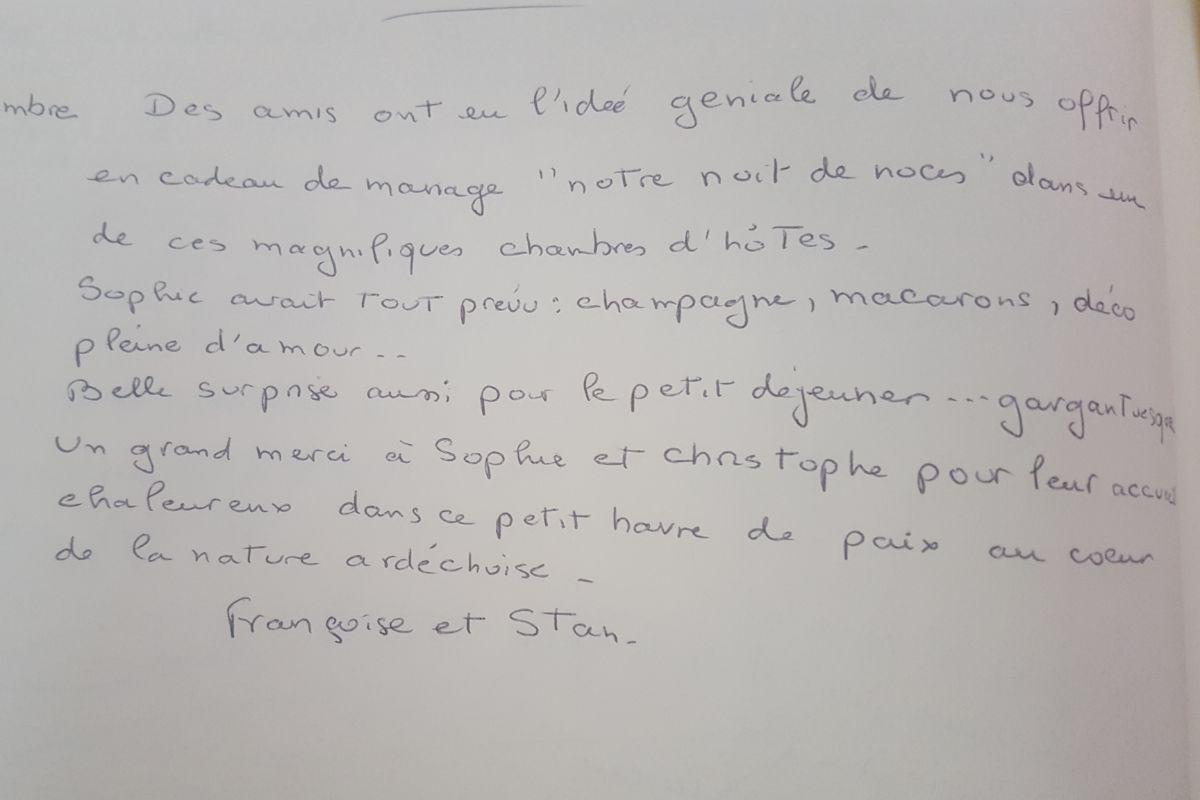 mbre Des amis ont eu l'ideé geniale de nous offrir
en cadeau de mariage "notre nuit de noces" dans un
de ces magnifiques chambres d'hôTes -
Sophie avait TOUT prévu : champagne, macarons, déco
pleine d'amour..
Belle surprise aussi pour le petit déjeuner ... garganTuesque
Un grand merci à Sophie et Christophe pour leur accueil
chaleureux dans ce petit havre de paix au coeur
de la nature ardéchoise -
Françoise et STan -